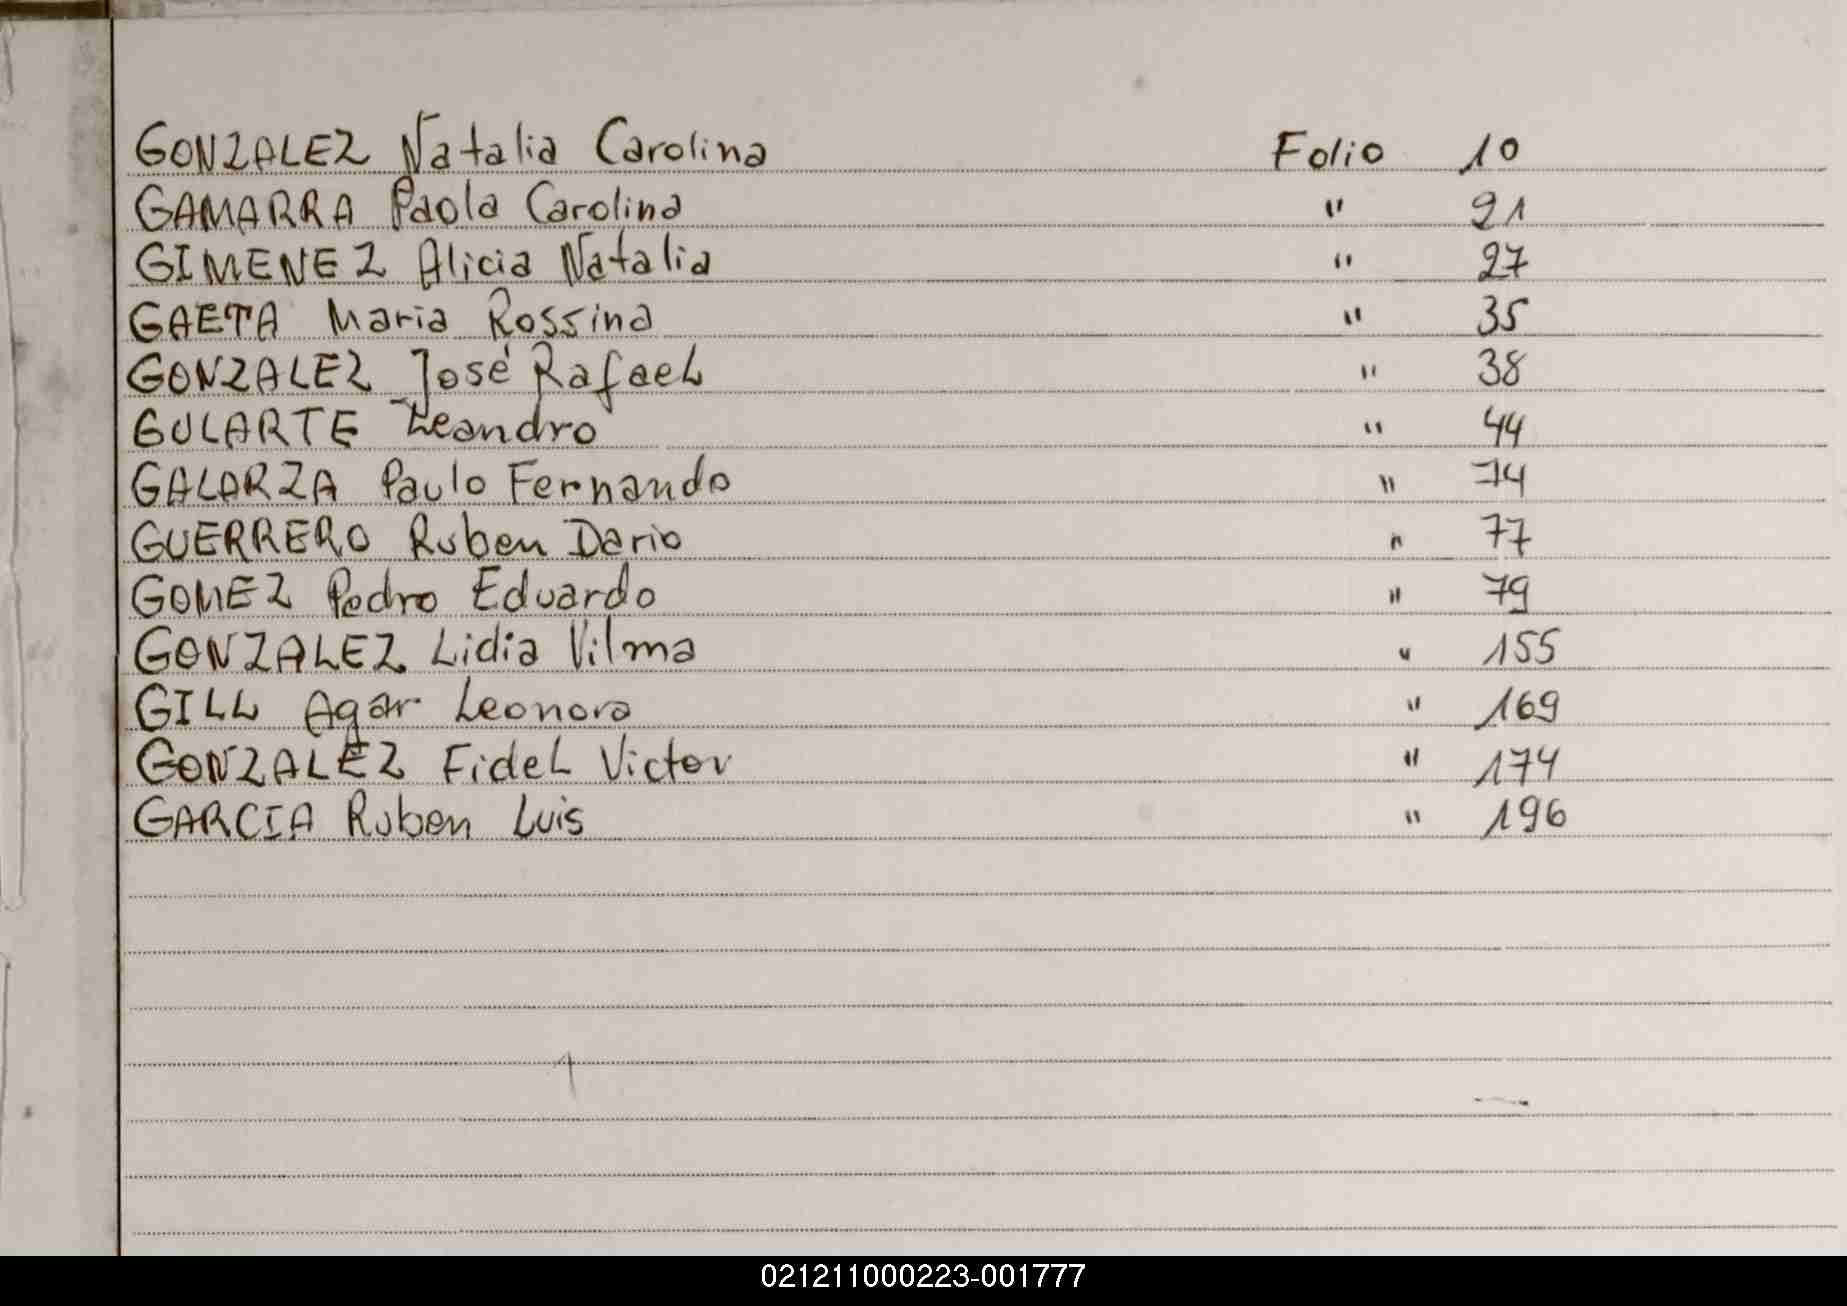 GONZALEZ Natalia Carolina Folio 10
GAMARRA Paola Carolina " 21
GIMENEZ Alicia Natalia " 27
GAETA Maria Rossina " 35
GONZALEZ José Rafael " 38
GULARTE Leandro " 44
GALARZA Paulo Fernando " 74
GUERRERO Ruben Dario " 77
GOMEZ Pedro Eduardo " 79
GONZALEZ Lidia Vilma " 155
GILL Agar Leonora " 169
GONZALEZ Fidel Victor " 174
GARCIA Ruben Luis " 196
021211000223-001777